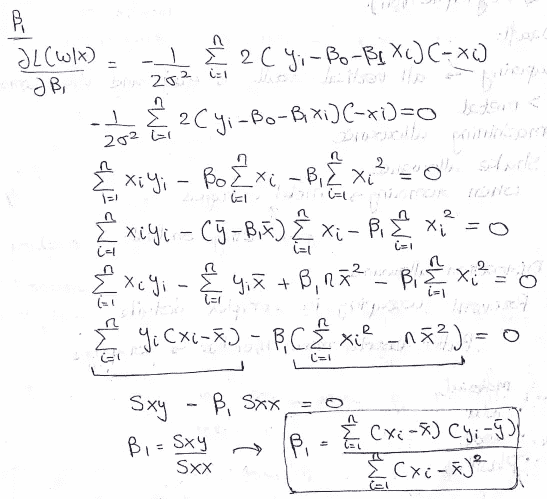 β₁
∂L(w|x)/∂β₁ = -1/2σ² Σᵢ₌₁ⁿ 2(yᵢ-β₀-β₁xᵢ)(-xᵢ)
-1/2σ² Σᵢ₌₁ⁿ 2(yᵢ-β₀-β₁xᵢ)(-xᵢ)=0
Σᵢ₌₁ⁿ xᵢyᵢ - β₀Σᵢ₌₁ⁿ xᵢ - β₁Σᵢ₌₁ⁿ xᵢ² = 0
Σᵢ₌₁ⁿ xᵢyᵢ - (ȳ-β₁x̄) Σᵢ₌₁ⁿ xᵢ - β₁Σᵢ₌₁ⁿ xᵢ² = 0
Σᵢ₌₁ⁿ xᵢyᵢ - Σᵢ₌₁ⁿ yᵢx̄ + β₁nx̄² - β₁Σᵢ₌₁ⁿ xᵢ² = 0
Σᵢ₌₁ⁿ yᵢ(xᵢ-x̄) - β₁(Σᵢ₌₁ⁿ xᵢ² - nx̄²) = 0
Sxy - β₁ Sxx = 0
β₁ = Sxy/Sxx → β₁ = Σᵢ₌₁ⁿ (xᵢ-x̄)(yᵢ-ȳ)/Σᵢ₌₁ⁿ (xᵢ-x̄)²